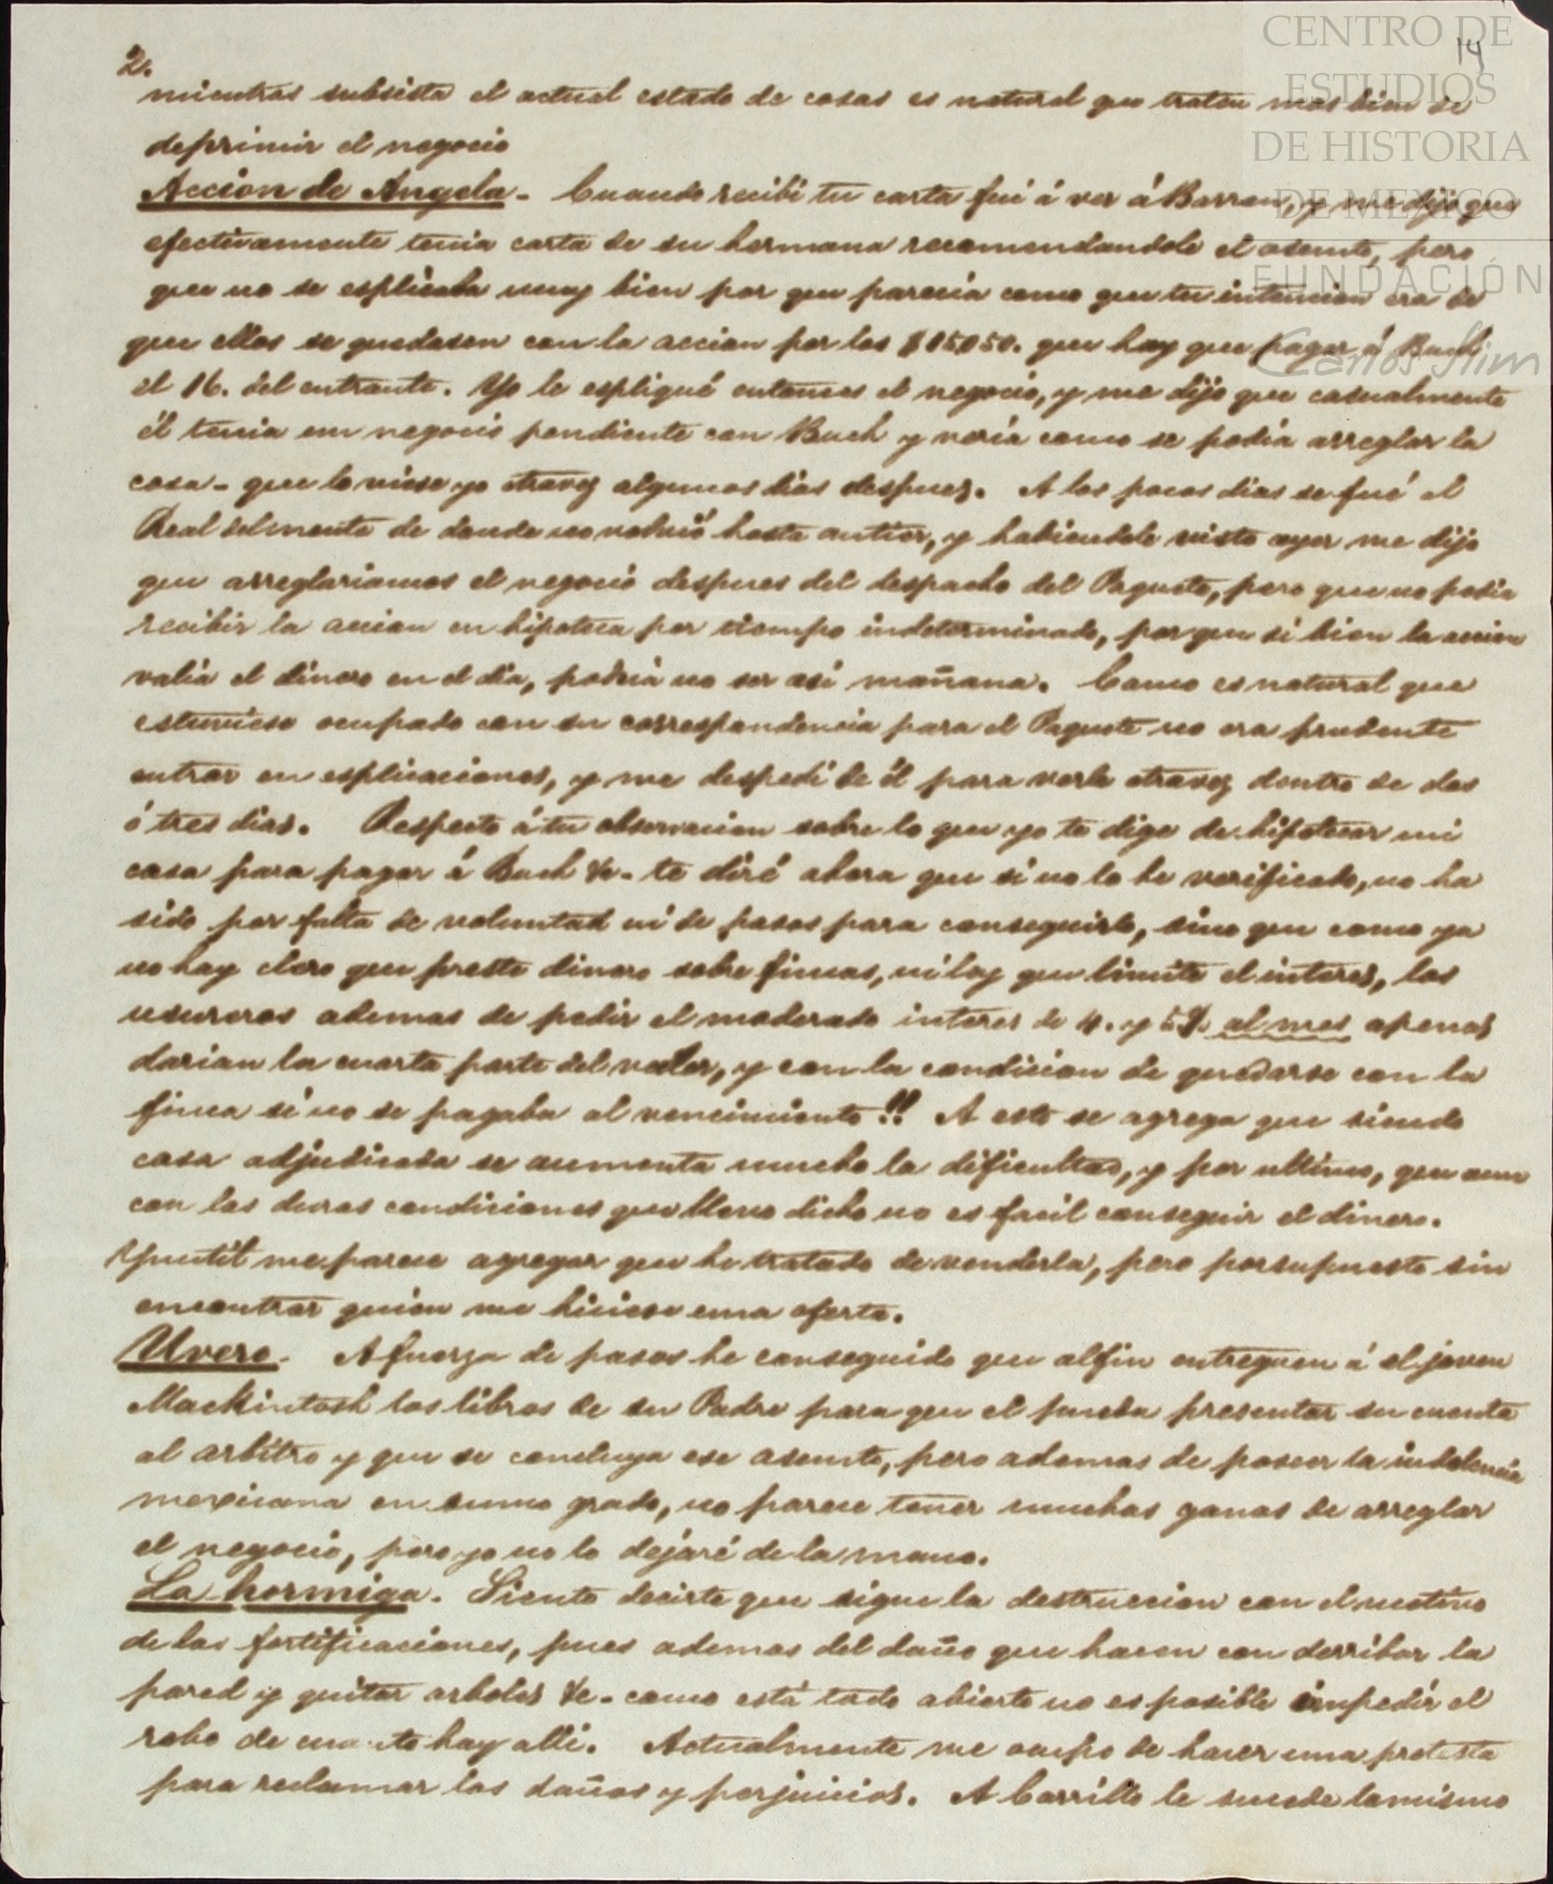 2.
14
CENTRO DE
ESTUDIOS
DE HISTORIA
DE MEXICO
FUNDACIÓN
Carlos Slim
mientras subsista el actual estado de cosas es natural que traten mas bien de
deprimir el negocio
Accion de Angela - Cuando recibí tu carta fuí á ver á Barron, y me dijo que
efectivamente tenia carta de su hermana recomendandole el asunto, pero
que no se esplicaba muy bien por que parecia como que tu intencion era de
que ellos se quedasen con la accion por los $15050. que hay que pagar á Buch
el 16. del entrante. Yo le espliqué entonces el negocio, y me dijo que casualmente
él tenia un negocio pendiente con Buch y veria como se podia arreglar la
cosa - que lo viese yo otravez algunos dias despues. A los pocos dias se fué el
Real del monte de donde no volvió hasta antier, y habiendole visto ayer me dijo
que arreglariamos el negocio despues del despacho del Paquete, pero que no podia
recibir la accion en hipoteca por tiempo indeterminado, por que si bien la accion
valia el dinero en el dia, podria no ser asi mañana. Como es natural que
estuviese ocupado con su correspondencia para el Paquete no era prudente
entrar en esplicaciones, y me despedí de él para verle otravez dentro de dos
ó tres dias. Respecto á tu observacion sobre lo que yo te dige de hipotecar mi
casa para pagar á Buch &c. te diré ahora que si no lo he verificado, no ha
sido por falta de voluntad ni de pasos para conseguirlo, sino que como ya
no hay clero que preste dinero sobre fincas, ni ley que limite el interes, los
usureros ademas de pedir el moderado interes de 4. y 5% al mes apenas
darian la cuarta parte del valor, y con la condicion de quedarse con la
finca si no se pagaba al vencimiento!! A esto se agrega que siendo
casa adjudicada se aumenta mucho la dificultad, y por ultimo, que aun
con las duras condiciones que llevo dicho no es facil conseguir el dinero.
Ynutil me parece agregar que he tratado de venderla, pero por supuesto sin
encontrar quien me hiciese una oferta.
Uvero. A fuerza de pasos he conseguido que alfin entreguen á el joven
Mackintosh los libros de su Padre para que el pueda presentar su cuenta
al arbitro y que se concluya ese asunto, pero ademas de poseer la indolencia
mexicana en sumo grado, no parece tener muchas ganas de arreglar
el negocio, pero yo no lo dejaré de la mano.
La hormiga. Siento decirte que sigue la destruccion con el motivo
de las fortificaciones, pues ademas del daño que hacen con derribar la
pared y quitar arboles &c. como está todo abierto no es posible impedir el
robo de cuanto hay alli. Actualmente me ocupo de hacer una protesta
para reclamar los daños y perjuicios. A Carrillo le sucede lo mismo